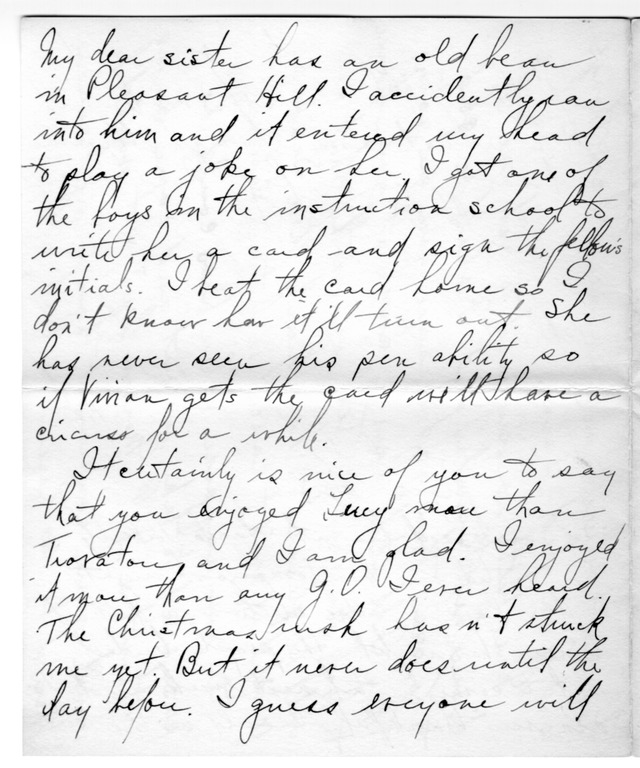 My dear sister has an old beau
in Pleasant Hill. I accidently ran
into him and it entered my head
to play a joke on her. I got one of
the boys in the instruction school to
write her a card and sign the fellow's
initials. I beat the card home so I
don't know how it'll turn out. She
has never seen his pen ability so
if Vivian gets the card we'll have a
circus for a while.
It certainly is nice of you to say
that you enjoyed Lucy more than
Trovatore and I am glad. I enjoyed
it more than any G.O. I ever heard.
The Christmas rush hasn't struck
me yet. But it never does until the
day before. I guess everyone will